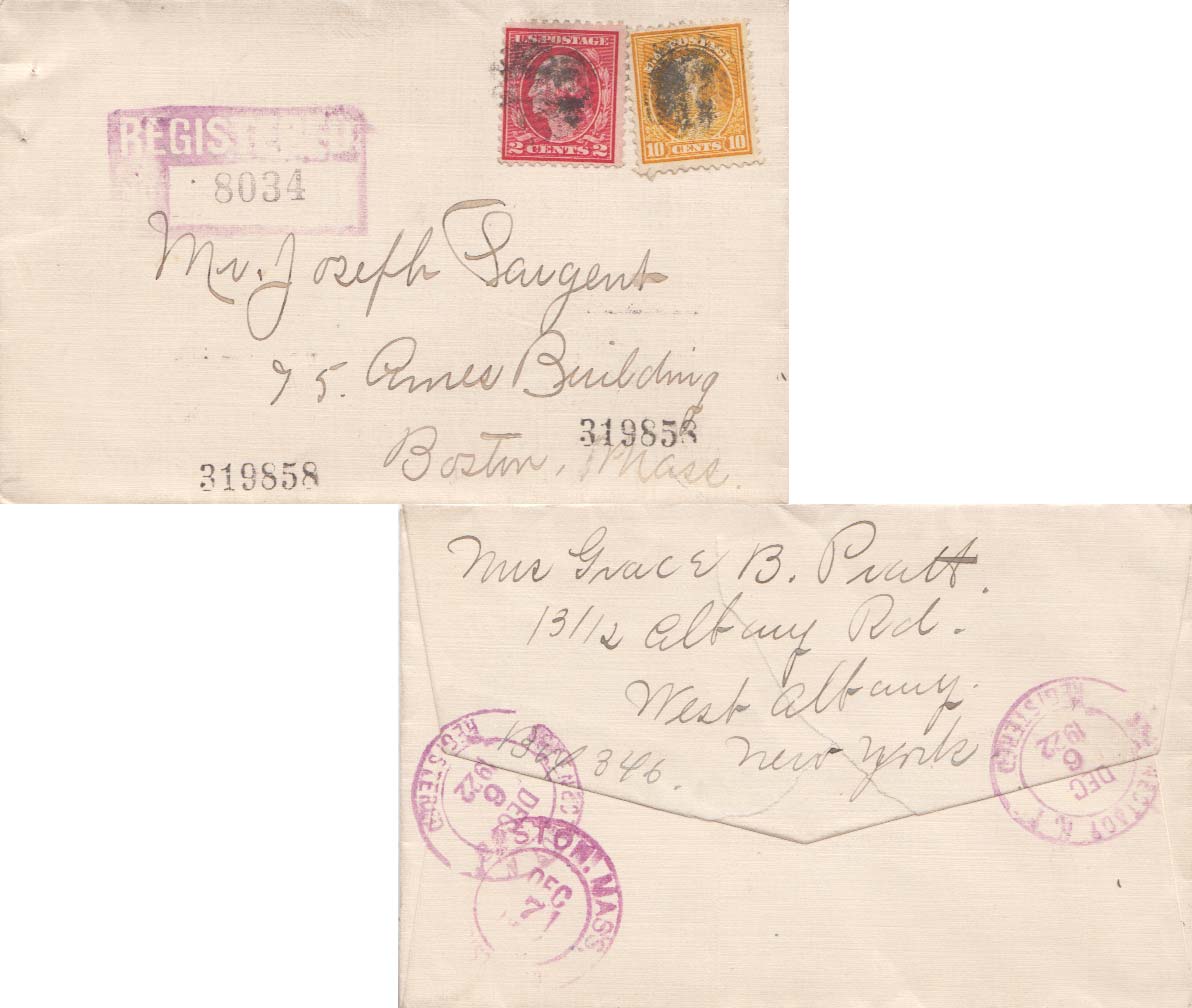 U.S. POSTAGE
2 CENTS 2
U.S. POSTAGE
10 CENTS 10
REGISTERED
8034
Mr. Joseph Sargent
75. Ames Building
Boston, Mass.
319858
319858
Mrs Grace B. Pratt.
1311½ Albany Rd.
West Albany.
New York
346.
REGISTERED
DEC
6
1922
REGISTERED
DEC
6
1922
N.Y.
STON, MASS
DEC
7